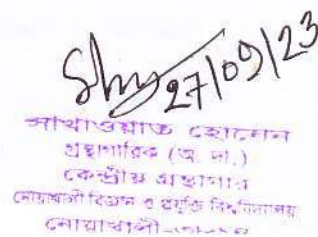 27/09/23
সাখাওয়াত হোসেন
গ্রন্থাগারিক (অ. দা.)
কেন্দ্রীয় গ্রন্থাগার
নোয়াখালী বিজ্ঞান ও প্রযুক্তি বিশ্ববিদ্যালয়
নোয়াখালী